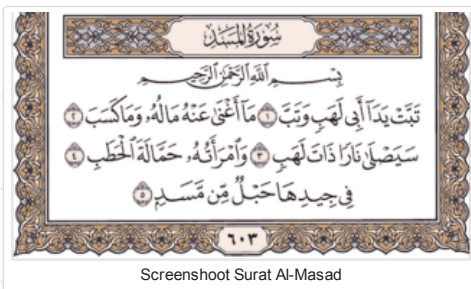 سُورَةُ المَسَدِ
بِسْمِ اللَّهِ الرَّحْمَٰنِ الرَّحِيمِ
تَبَّتْ يَدَآ أَبِي لَهَبٍ وَتَبَّ ١ مَآ أَغْنَىٰ عَنْهُ مَالُهُۥ وَمَا كَسَبَ ٢
سَيَصْلَىٰ نَارًا ذَاتَ لَهَبٍ ٣ وَٱمْرَأَتُهُۥ حَمَّالَةَ ٱلْحَطَبِ ٤
فِي جِيدِهَا حَبْلٌ مِّن مَّسَدٍۭ ٥
٦٠٣
Screenshoot Surat Al-Masad